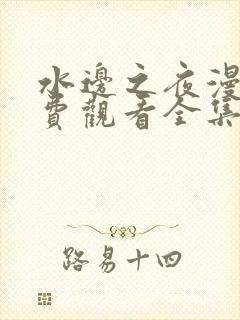 水邊之夜漫
費觀看全集
路易十四